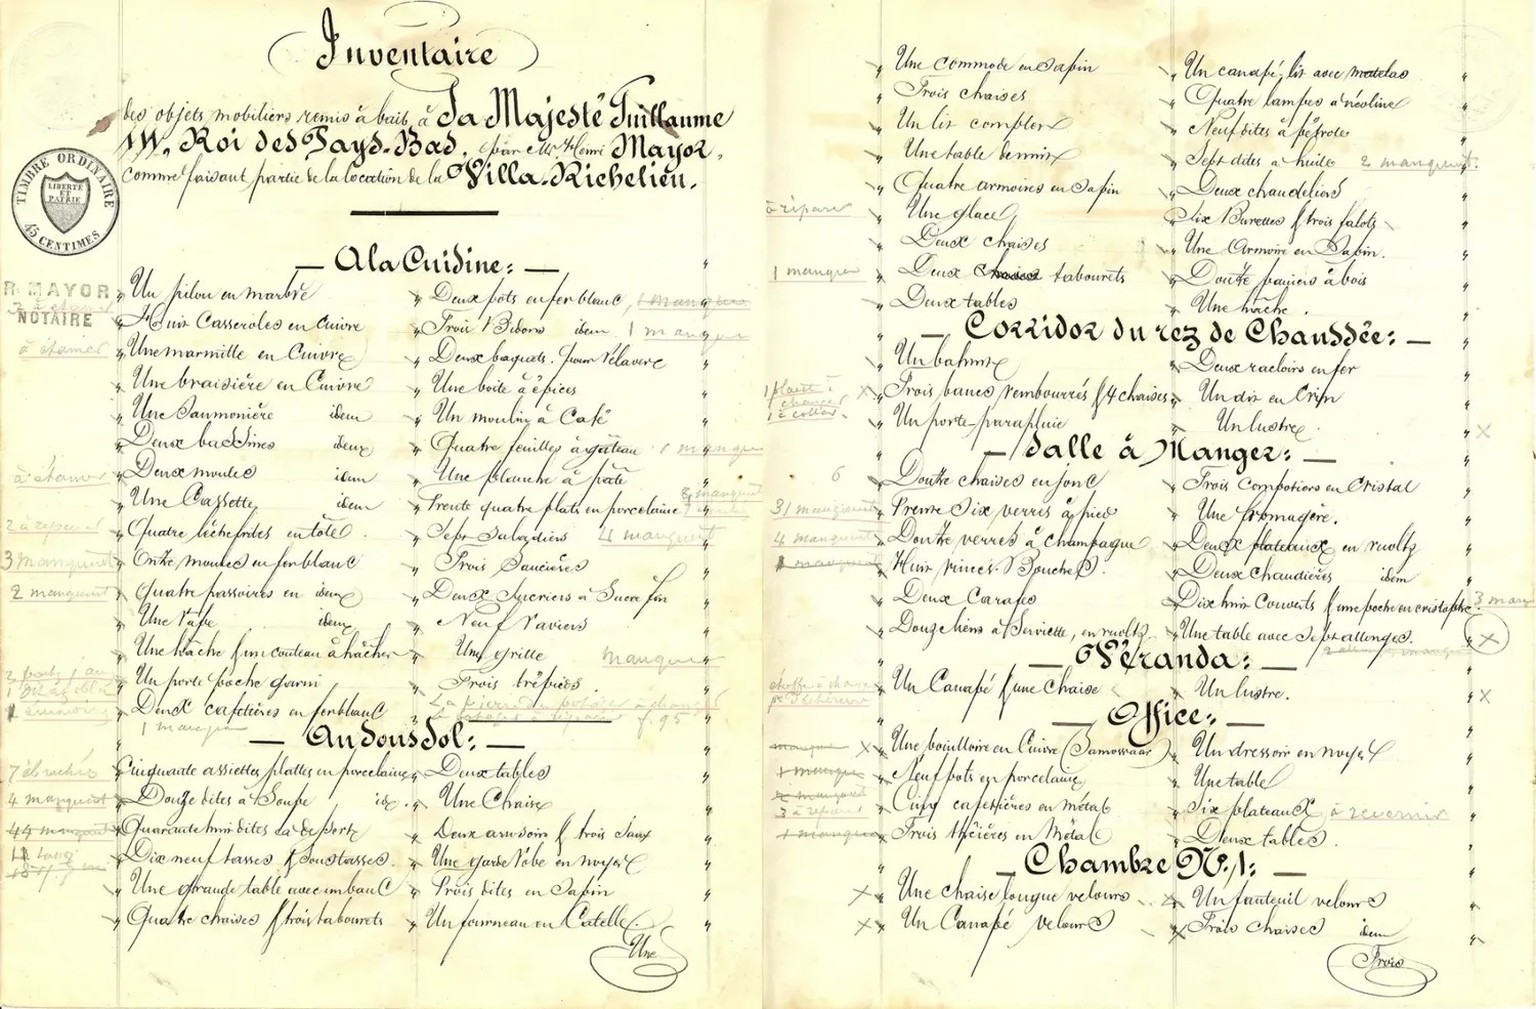 Inventaire
des objets mobiliers remis à bail, à Sa Majesté Guillaume
III. Roi des Pays-Bas, par Mr. Henri Mayor,
comme faisant partie de la location de la Villa-Richelieu.
TIMBRE ORDINAIRE
LIBERTÉ
ET
PATRIE
45 CENTIMES
R. MAYOR
NOTAIRE
A la Cuisine:
Un pilon en marbre
Huit Casseroles en Cuivre
à étamer
Une marmitte en Cuivre
Une braisière en Cuivre
Une Saumonière idem
Deux bassines idem
à étamer
Deux moules idem
Une Cassette idem
2 à réparer
Quatre léchefrites en tôle
3 manquent
Onze moules en ferblanc
2 manquent
Quatre passoires en idem
Une idem
Une hâche & un couteau à hâcher
Un porte poche garni
Deux cafetières en ferblanc
1 manque
Deux pôts en fer blanc, 1 manque
Trois Bidons idem 1 manque
Deux baquets pour rélaver
Une boîte à épices
Un moulin à Café
Quatre feuilles à gâteau 1 manque
Une planche à pâte
Trente quatre plats en porcelaine
Sept Saladiers 4 manquent
Trois Saucières
Deux Sucriers à Sucre fin
Neuf Raviers
Une grille manque
Trois trépieds
La pierre du potager à changer
f. 95
Au Sous Sol:
7 ébréchés
Cinquante assiettes plattes en porcelaine
4 manquent
Douze dites à Soupe id.
44 manquent
Quarante huit dites de dessert
Dix neuf tasses & soustasses.
Une grande table avec un banc
Quatre chaises & trois tabourets
Deux tables
Une Chaise
Deux arrosoirs & trois Seaux
Une garde robe en noyer
Trois dites en Sapin
Un fourneau en Catelles.
Une
Une commode en Sapin
Trois chaises
Un lit complet
Une table de nuit
Quatre armoires en Sapin
à réparer
Une glace
Deux chaises
1 manque
Deux chaises tabourets
Deux tables
Un canapé, lit avec matelas
Quatre lampes à néoline
Neuf dites à pétrole
Sept dites à huile 2 manquent.
Deux chandeliers
Six Burettes & trois falots
Une Armoire en Sapin.
Douze paniers à bois
Une hâche.
Corridor du rez de Chaussée:
Un bahut
Trois bancs rembourrés & 4 chaises
Un porte-parapluie
Deux racloirs en fer
Un dit en Crin
Un lustre.
Salle à Manger:
6
Douze chaises en jonc
31 manquent
Trente Six verres à pied
4 manquent
Douze verres à champagne
1 manque
Huit rinces-Bouches.
Deux Carafes
Douze liens à Serviette, en ruoltz
Trois Compotiers en Cristal
Une fromagère.
Deux plateaux en ruoltz
Deux Chaudières idem
Dix huit Couverts & une poche en cristophle
Une table avec Sept allonges.
Véranda:
Un Canapé & une Chaise
Un lustre.
Office:
Une bouilloire en Cuivre (Samovaar)
1 manque
Neuf pots en porcelaine
3 à réparer
Cinq cafetières en Métal
1 manque
Trois théières en Métal
Un dressoir en noyer
Une table
Six plateaux à revernir
Deux tables.
Chambre No. 1:
Une chaise longue velours
Un Canapé velours
Un fauteuil velours
Trois chaises idem
Trois